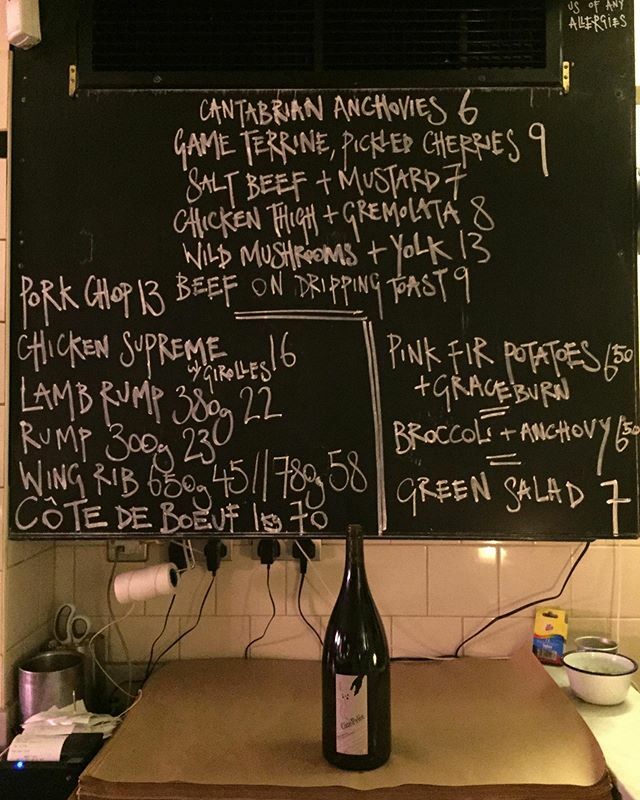 US OF ANY
ALLERGIES
CANTABRIAN ANCHOVIES 6
GAME TERRINE, PICKLED CHERRIES 9
SALT BEEF + MUSTARD 7
CHICKEN THIGH + GREMOLATA 8
WILD MUSHROOMS + YOLK 13
BEEF ON DRIPPING TOAST 9
PORK CHOP 13
CHICKEN SUPREME 16
W/ GIROLLES
LAMB RUMP 380g 22
RUMP 300g 23
WING RIB 650g 45 // 780g 58
CÔTE DE BOEUF 1kg 70
PINK FIR POTATOES 6 50
+ GRACEBURN
BROCCOLI + ANCHOVY 6 50
GREEN SALAD 7